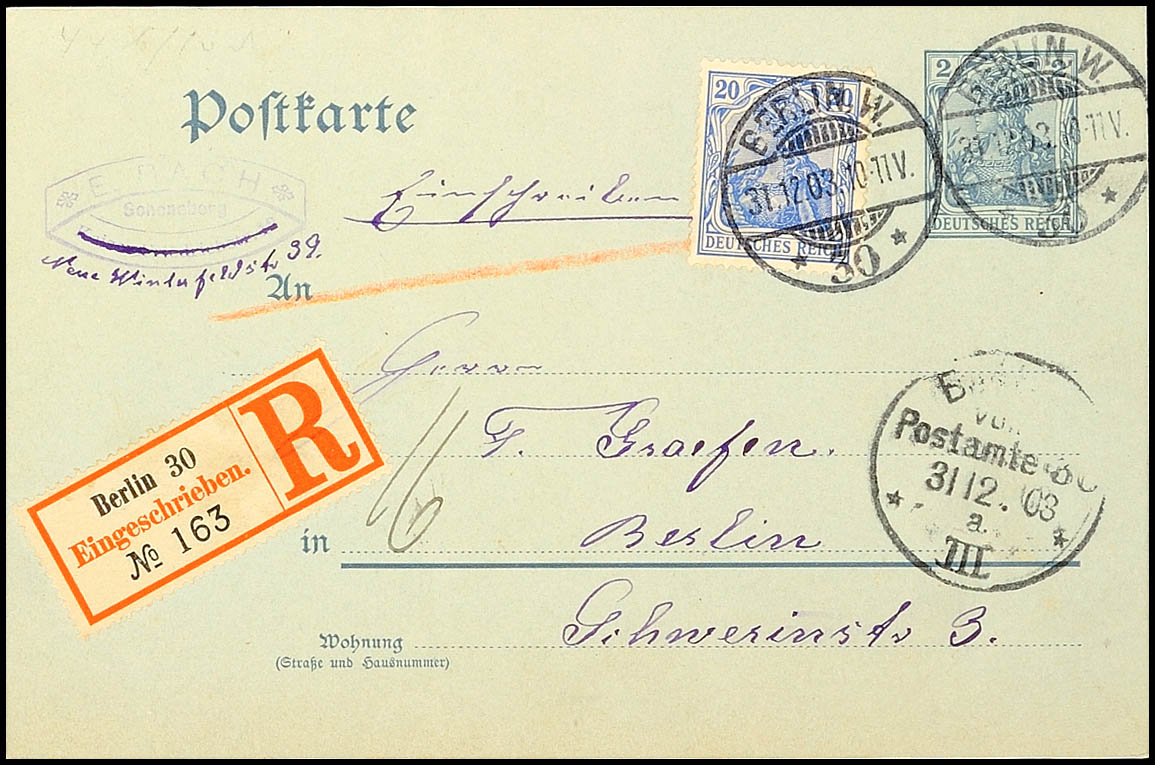 Postkarte
E. BACH
Schöneberg
Neue Winterfeldstr 39.
Einschreiben
20 20
DEUTSCHES REICH
BERLIN. W.
31.12.03.10-11V.
* 30 *
2 2
DEUTSCHES REICH
BERLIN W.
31.12.03.10-11V.
An
Herrn
F. Graefen.
in
Berlin
Schwerinstr 3.
Wohnung
(Straße und Hausnummer)
Berlin 30
Eingeschrieben.
№ 163
R
Postamte 30
31 12. 03
a.
III